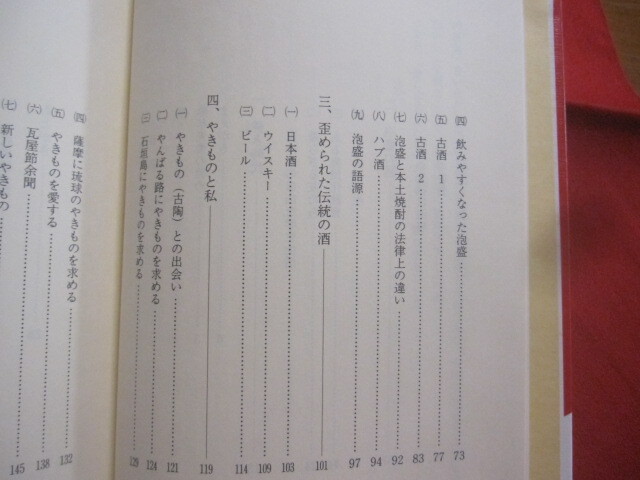 ㈣ 飲みやすくなった泡盛 73
㈤ 古酒 1 77
㈥ 古酒 2 83
㈦ 泡盛と本土焼酎の法律上の違い 92
㈧ ハブ酒 94
㈨ 泡盛の語源 97
三、歪められた伝統の酒 101
㈠ 日本酒 103
㈡ ウイスキー 109
㈢ ビール 114
四、やきものと私 119
㈠ やきもの（古陶）との出会い 121
㈡ やんばる路にやきものを求める 124
㈢ 石垣島にやきものを求める 129
㈣ 薩摩に琉球のやきものを求める 132
㈤ やきものを愛する 138
㈥ 瓦屋節余聞 145
㈦ 新しいやきもの